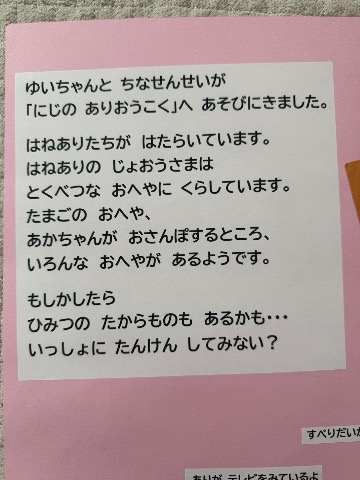 ゆいちゃんと ちなせんせいが
「にじの ありおうこく」へ あそびにきました。
はねありたちが はたらいています。
はねありの じょおうさまは
とくべつな おへやに くらしています。
たまごの おへや、
あかちゃんが おさんぽするところ、
いろんな おへやが あるようです。
もしかしたら
ひみつの たからものも あるかも･･･
いっしょに たんけん してみない？
すべりだいか
ありが テレビをみているよ